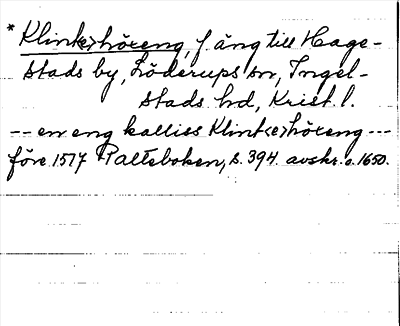 * Klink<e>höreng, f. äng till Hage-
stads by, Löderups sn, Ingel-
stads hd, Krist. l.
-- en eng kalliss Klint<e>höreng ---
före 1517 Palteboken, s. 394. avskr. o. 1650.